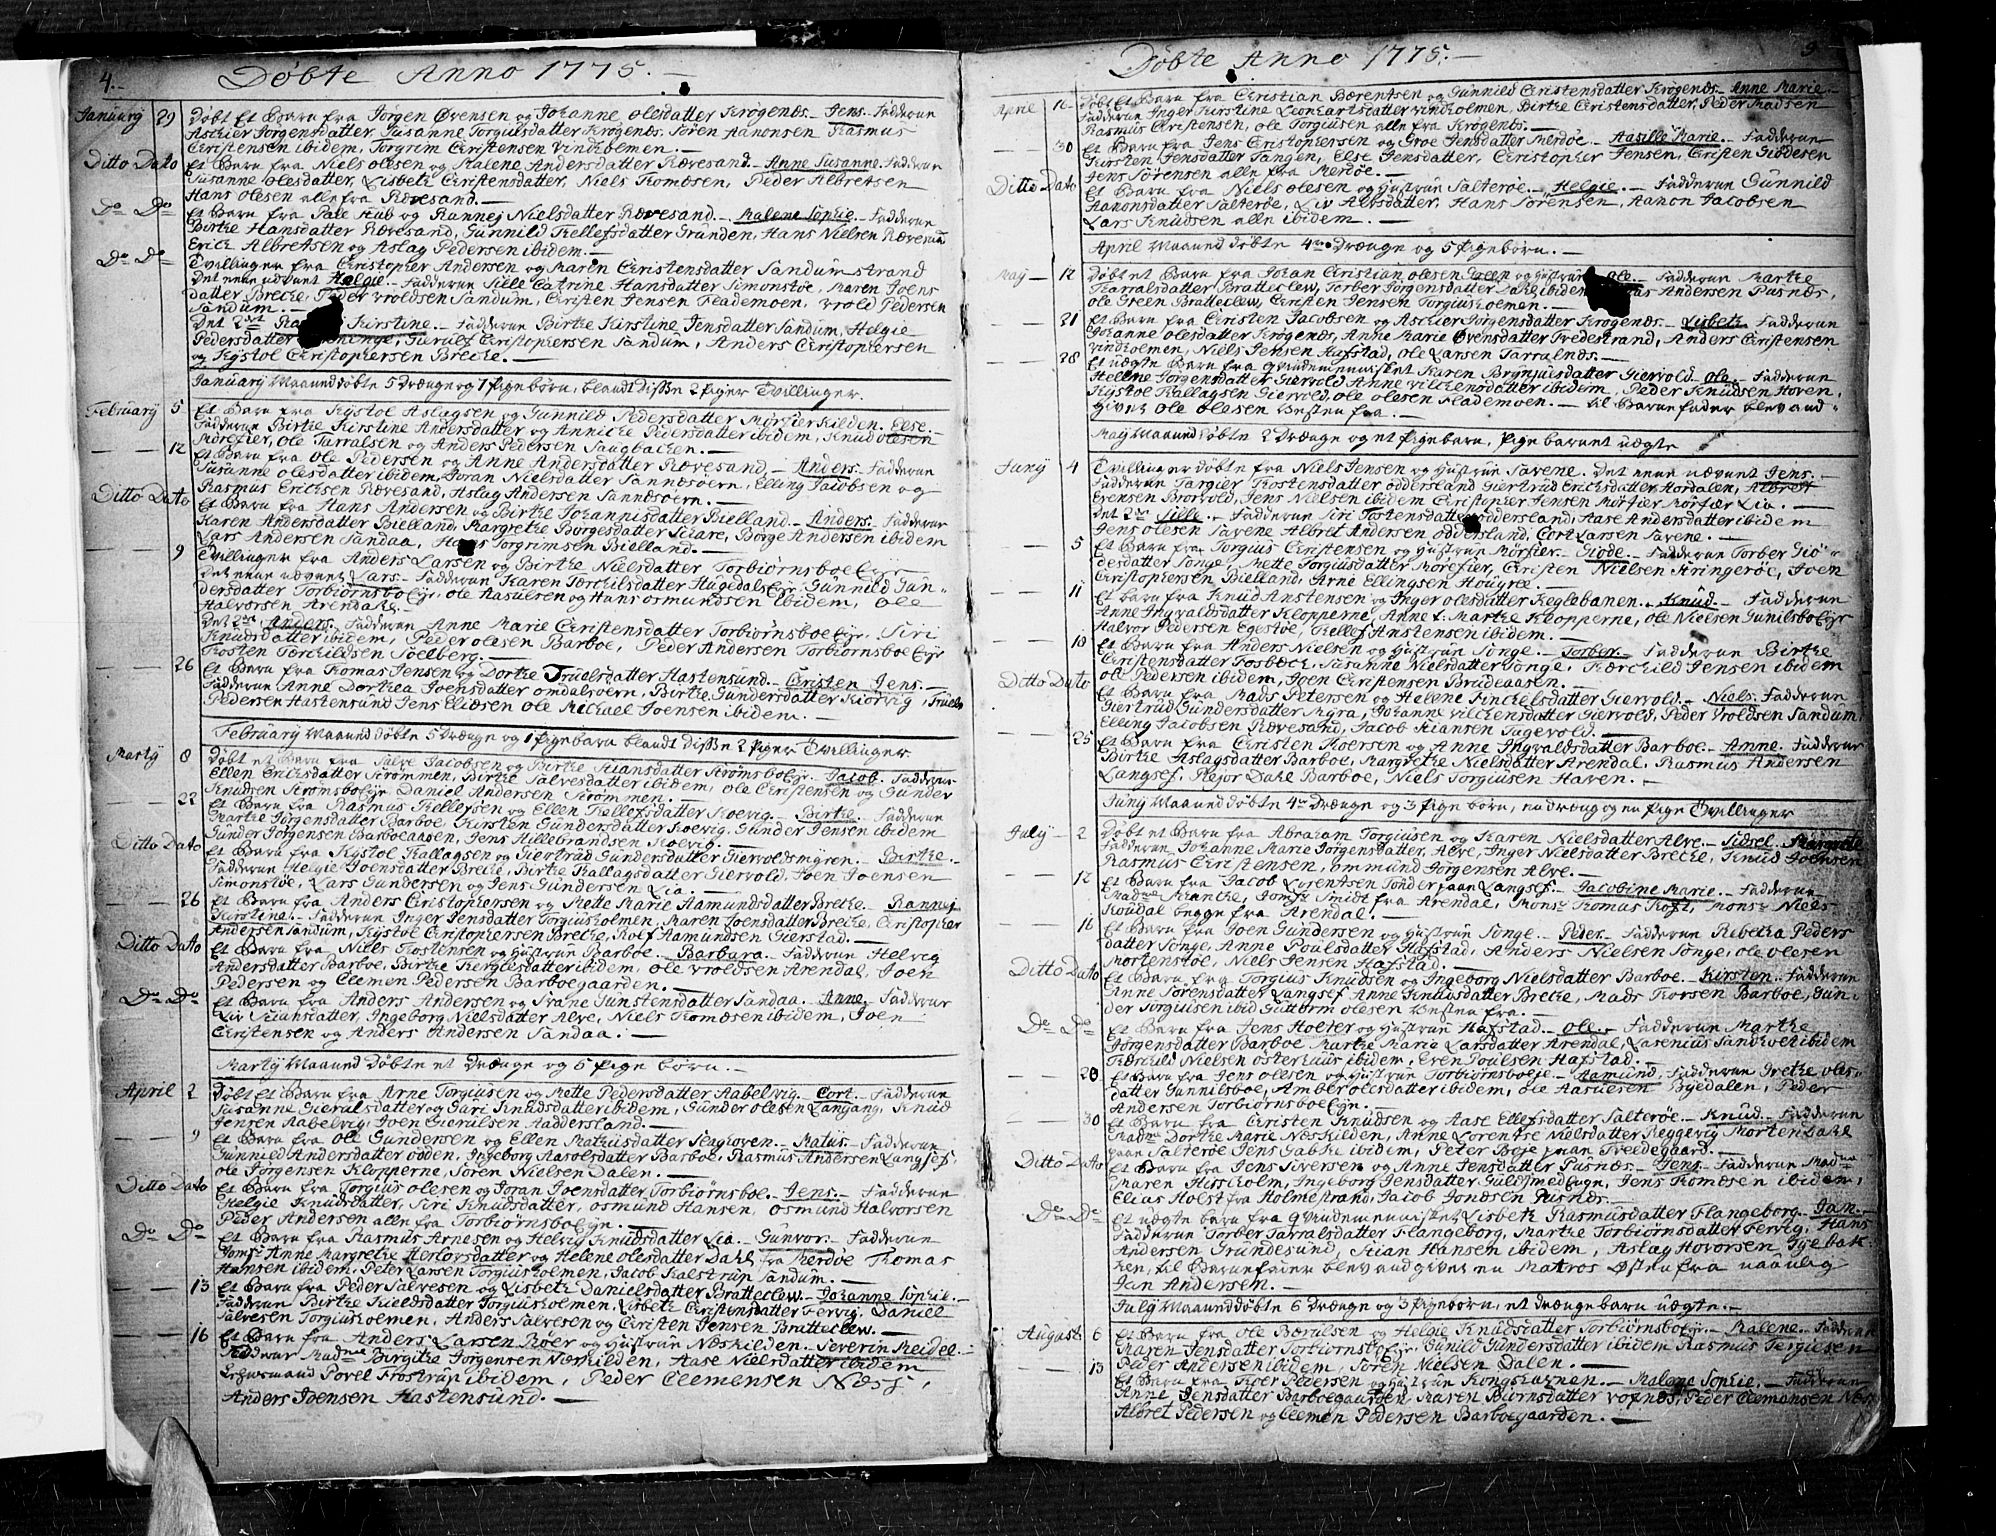 4.
Döbte Anno 1775.
Januarÿ 29 Döbt Et Barn fra Jörgen Övensen og Johanne olesdatter Krögenes. Jens. Fadderne
Aschier Jörgensdatter, Susanne Torgiulsdatter Krögenes, Sören Aanonsen Rasmus
Christensen ibidem, Torgrim Christensen Vindholmen.
Ditto Dato Et Barn fra Niels Olesen og Malene Andersdatter Rævesand. Anne Susanne. Fadderne
Susanne olesdatter, Lisbeth Christensdatter, Niels Thomæsen, Peder Albretsen
Hans Olesen alle fra Rævesand.
Do Do Et Barn fra Pale Hub og Rannej Nielsdatter Rævesand. Malene Sophie. Fadderne
Birthe Hansdatter Rævesand, Gunnild Kellefsdatter Grunden, Hans Nielsen Rævesand
Erich Albretsen og Aslag Pedersen ibidem.
Do Do Tvillinger fra Christopher Andersen og Maren Christensdatter Sandum strand
Det eene nævnt Helgie. Fadderne Sille Catrine Hansdatter Simonstøe, Maren Joens
datter Breche, Peder Vroldsen Sandum, Christen Jensen Flademoen, Vrold Pedersen
Sandum.
Det 2det Kirstine. Fadderne Birthe Kirstine Jensdatter Sandum, Helgie
Pedersdatter Gullulf Christophersen Sandum, Anders Christophersen
og Kÿstol Christophersen Breche.
Januarÿ Maaned döbte 5 Drænge og 1 Pigebörn, blandt disse 2 Piger Tvillinger.
Februarÿ 5 Et Barn fra Kÿstol Aslagsen og Gunnild Pedersdatter Mörfierkilden. Else.
Fadderne Birthe Kirstine Andersdatter og Anniche Pedersdatter ibidem, Knud olesen
Morefier, Ole Tarralsen og Anders Pedersen Saugbachen.
12 Et Barn fra Ole Pedersen og Anne Andersdatter Rævesand. Anders. Fadderne
Susanne olesdatter ibidem, Joran Nielsdatter Sannesöern, Elling Jacobsen og
Rasmus Erichsen Rævesand, Aslag Andersen Sannesöern.
Ditto Dato Et Barn fra Hans Andersen og Birthe Johannisdatter Bielland. Anders. Fadderne
Karen Andersdatter Bielland, Margrethe Börgesdatter Sciare, Börge Andersen ibidem
Lars Andersen Sandaa, Hans Torgrimsen Bielland.
9 Tvillinger fra Anders Larsen og Birthe Nielsdatter Torbiörnsboe Eÿe
Det eene nævnt Lars. Fadderne Karen Torchilsdatter Hugedals Eÿe, Gunnild Gun-
dersdatter Torbiörnsbo Eÿe, Ole Aasulsen og Hans Osmundsen ibidem, Ole
Halvorsen Arendahl.
Det 2det Anders. Fadderne Anne Marie Christensdatter Torbiörnsboe Eÿe. Siri
Knudsdatter ibidem, Peder olesen Barboe, Peder Andersen Torbiörnsboe Eÿe
Thosten Torchildsen Solberg.
26 Et Barn fra Thomas Jensen og Dorthe Truelsdatter Hastensund. Christen Jens.
Fadderne Anne Dorthea Joensdatter Omdalsöern, Birthe Gundersdatter Kiörvig, Truels
Pedersen Hastensund Jens Eliesen Ole Michael Joensen ibidem.
Februarÿ Maaned döbte 5 Drænge og 1 Pigebarn blandt disse 2 Piger Tvillinger
Martÿ 8 Döbt et Barn fra Salve Jacobsen og Birthe Kiansdatter Strömsbo Eÿe. Jacob. Fadderne
Ellen Erichsdatter Strömmen, Birthe Salvesdatter ibidem, Ole Christensen og Gunder
Knudsen Strömsbo Eÿe Daniel Andersen Strömmen.
22 Et Barn fra Rasmus Kellefsen og Ellen Kellefsdatter Koevig. Birthe. Fadderne
Marthe Jörgensdatter Barboe, Kirsten Gundersdatter Koevig, Gunder Jensen ibidem
Gunder Jörgensen Barboeaasen, Jens Hillebrandsen Koevig.
Ditto Dato Et Barn fra Kÿstol Kallagsen og Giertrud Gundersdatter Giervoldsmÿren. Birthe.
Fadderne Helgie Joensdatter Breche, Birthe Kallagsdatter Giervold, Joen Joensen
Simonstøe, Lars Gundersen og Jens Gundersen Lia.
26 Et Barn fra Anders Christophersen og Mette Marie Aamundsdatter Breche. Rannej
Kirstine. Fadderne Inger Jensdatter Torgiusholmen, Maren Joensdatter Breche, Christopher
Andersen Sandum, Kÿstol Christophersen Breche, Rolf Aamundsen Gierstad.
Ditto Dato Et Barn fra Niels Thostensen og Hustrue Barboe. Barbara. Fadderne Helvig
Andersdatter Barboe, Birthe Kerglesdatter ibidem, Ole Vroldsen Arendal, Joen
Pedersen og Clemen Pedersen Barboegaarden.
Do Do Et Barn fra Anders Andersen og Svane Gunstensdatter Sandaa. Anne. Fadderne
Liv Kiansdatter, Ingeborg Nielsdatter Alve, Niels Thomæsen ibidem, Joen
Christensen og Anders Andersen Sandaa.
Martÿ Maaned Döbte et Drænge og 5 Pige börn.
April 2 Döbt Et Barn fra Arne Torgiusen og Mette Pedersdatter Aabelvig. Cort. Fadderne
Susanne Gierulsdatter og Guri Knudsdatter ibidem, Gunder olesen Langang, Knud
Jensen Aabelvig, Joen Gierulsen Aaddersland.
9 Et Barn fra Ole Gundersen og Ellen Mathisdatter Seaghoven. Matÿs. Fadderne
Gunnild Andersdatter Odden, Ingeborg Aasolsdatter Barboe, Rasmus Andersen Langsef
Ole Jörgensen Klopperne, Sören Nielsen Dalen.
Ditto Dato Et Barn fra Torgius olesen og Joran Joensdatter Torbiörnsboe. Jens. Fadderne
Helgie Knudsdatter, Siri Knudsdatter, Osmund Hansen, Osmund Halvorsen
Peder Andersen alle fra Torbiörnsbo Eÿe.
Do Do Et Barn fra Rasmus Arnesen og Helvig Knudsdatter Lia. Gunvor. Fadderne
Jomfr Anne Margrethe Herlofsdatter og Helene Olesdatter Dahl fra Merdöe Thomas
Hansen ibidem, Peter Larsen Torgiusholmen, Jacob Kalstrup Sandum.
13 Et Barn fra Peder Salvesen og Lisbeth Danielsdatter Bratteclew. Johanne Sophie.
Fadderne Birthe Kieldsdatter Torgiusholmen, Lisbeth Christensdatter Fervig, Daniel
Salvesen Torgiusholmen, Anders Salvesen og Christen Jensen Bratteclew.
16 Et Barn fra Anders Larsen Röer og Hustrue Neskilden. Severin Meidel.
Fadderne Madme Birgithe Jörgensen Neskilden, Aase Nielsdatter ibidem
Povel Frostrup ibidem, Peder Clemensen Næss,
Anders Joensen Hastensund.
Döbte Anno 1775.
April 16 Döbt Et Barn fra Christian Bærentsen og Gunnild Christensdatter Krögenes. Anne Marie.
Fadderne Inger Kirstine Leonhartsdatter Vindholmen, Birthe Christensdatter, Peder Madsen
Rasmus Christensen, Ole Torgiusen alle fra Krögenes.
30 Et Barn fra Jens Christophersen og Groe Jensdatter Merdöe. Aasille Marie. Fadderne
Kirsten Jensdatter Tangen, Else Jensdatter, Christopher Jensen, Christen Giödesen
Jens Sörensen alle fra Merdöe.
Ditto Dato Et Barn fra Niels Olesen og Hustrue Salteröe. Helgie. Fadderne Gunnild
Aanonsdatter Salteröe, Liv Alvsdatter, Hans Sörensen, Aanon Jacobsen
Lars Knudsen alle ibidem.
April Maaned Döbte 4re Drænge og 5 Pigebörn.
May 12 Döbt et Barn fra Johan Christian olesen Green og Hustrue Ole. Fadderne Marthe
Tarralsdatter Bratteclew, Torber Jörgensdatter Dahl ibidem Andersen Pusnes,
Ole Green Bratteclew, Christen Jensen Torgiusholmen.
21 Et Barn fra Christen Jacobsen og Aschier Jörgensdatter Krögenes. Lisbeth. Fadderne
Johanne olesdatter Krögenes, Anne Marie Övensdatter Tvedestrand, Anders Christensen
Vindholmen, Niels Jensen Hafstad, Ole Larsen Tarralnes.
28 Et uægte Barn fra Qvindemennisket Karen Brÿnjulsdatter Giervold. Ole. Fadderne
Hellene Jörgensdatter Giervold Anne Vilchensdatter ibidem, Peder Knudsen Hoven,
Kÿstol Kallagsen Giervold, Ole Olesen Flademoen. til Barnefader blev and-
givet Ole Olesen Vesten fra.
Maÿ Maaned Döbte 2 Drænge og et Pigebarn, Pigebarnet uægte
Junÿ 4 Tvillinger döbte fra Niels Jensen og Hustrue Savene. Det eene nævnt Jens.
Fadderne Targier Thostensdatter Oddersland Giertrud Erichsdatter Hordalen, Albret
Evensen Brorvold, Jens Nielsen ibidem Christopher Jensen Mörfier Lia.
Det 2det Sille. Fadderne Siri Tostensdatter Oddersland, Aase Andersdatter ibidem
Jens olesen Savene Albret Andersen Oddersland, Cort Larsen Savene.
5 Et Barn fra Torgius Christensen og Hustrue Mörfier. Giöde. Fadderne Torber Giö-
desdatter Songe, Mette Torgiusdatter Morefier, Christen Nielsen Kringeröe, Joen
Christophersen Bielland, Arne Ellingsen Hougree.
11 Et Barn fra Knud Anstensen og Inger Olesdatter Keglebanen. Knud. Fadderne
Anne Ingvaldsdatter Klopperne, Anne f. Marthe Klopperne, Ole Nielsen Gunilsbo Eÿe
Halvor Pedersen Egestøe, Kellef Anstensen ibidem.
18 Et Barn fra Anders Nielsen og Hustrue Songe. Torber. Fadderne Birthe
Christensdatter Fosbech, Susanne Nielsdatter Songe, Therchild Jensen ibidem
Ole Pedersen ibidem, Joen Christensen Brudeaasen.
Ditto Dato Et Barn fra Mads Petersen og Helene Finchelsdatter Giervold. Niels. Fadderne
Giertrud Gundersdatter Myra, Johanne Vilchensdatter Giervold, Peder Vroldsen Sandum
Elling Jacobsen Rævesand, Jacob Kiansen Fagevold.
25 Et Barn fra Christen Thoersen og Anne Ingvaldsdatter Barboe. Anne. Fadderne
Birthe Aslagsdatter Barboe, Margrethe Nielsdatter Arendal, Rasmus Andersen
Langsef, Rejor Dahl Barboe, Niels Torgiusen Haven.
Junÿ Maaned Döbte 4re Drænge og 3 Pige börn, en Dræng og en Pige Tvillinger
Julÿ 2 Döbt et Barn fra Abraham Torgiusen og Karen Nielsdatter Alve. Sidsel Margrethe
Fadderne Johanne Marie Jörgensdatter, Alve, Inger Nielsdatter Breche, Knud Joensen
Rasmus Christensen, Ommund Jörgensen Alve.
12 Et Barn fra Jacob Lorentsen Tonder paa Langsef. Jacobine Marie. Fadderne
Madme Krancke, Jomfr Smidt fra Arendal, Monsr Thomas Koft, Monsr Niels
Roudal begge fra Arendal.
16 Et Barn fra Joen Gundersen og Hustrue Songe. Peder. Fadderne Rebecka Peders
datter Songe, Anne Poulsdatter Hafstad, Anders Nielsen Songe, Ole Olesen
Mortenstøe, Niels Jensen Hafstad.
Ditto Dato Et Barn fra Torgius Knudsen og Ingeborg Nielsdatter Barboe. Kirsten. Fadderne
Anne Sörensdatter Langsef Anne Knudsdatter Breche, Mads Thorsen Barboe, Gun-
der Torgiusen ibid Guttorm Olesen Vesten fra.
Do Do Et Barn fra Jens Holter og Hustrue Hafstad. Ole. Fadderne Marthe
Jörgensdatter Barboe Marthe Maria Larsdatter Arendal, Lasenius Sandhoel ibidem
Therchild Nielsen Osterhuus ibidem, Even Poulsen Hafstad.
20 Et Barn fra Jens Olesen og Hustrue Torbiörnsboeÿe. Aamund. Fadderne Grethe Oles-
datter Gunnilsboe, Amber olesdatter ibidem, Ole Aasulsen Bÿedalen, Peder
Andersen Torbiörnsboe Eÿe.
30 Et Barn fra Christen Knudsen og Aase Ellefsdatter Salteröe. Knud. Fadderne
Madme Dorthe Marie Neskilden, Anne Lorentse Nielsdatter Heggevig Morten Dahl
paa Salteröe Jens Gabche ibidem, Peter Boje paa Tvedegaard.
Ditto Dato Et Barn fra Jens Siversen og Anne Jensdatter Pusnes. Jens. Fadderne Madme
Maren Hirsholm, Ingeborg Jensdatter Guldsmedengn, Jens Thomæsen ibidem,
Elias Holst fra Holmestrand, Jacob Jonæsen Pusnes.
Do Do Et uægte barn fra Qvindemennisket Lisbeth Rasmusdatter Flangeborg. Jan.
Fadderne Torber Tarralsdatter Flangeborg, Marthe Torbiörnsdatter Fervig, Hans
Andersen Grundesund, Kian Hansen ibidem, Aslag Hovorsen, Gÿebak-
ken, til Barnefader blev andgiven en Matros Östen fra navnlig
Jan Andersen.
Julÿ Maaned Döbte 6 Drænge og 3 Pigebörn, et Drængebarn uægte.
August 6 Et Barn fra Ole Bærulsen og Helgie Knudsdatter Torbiörnsbo Eÿe. Malene. Fadderne
Maren Jensdatter Torbiörnsbo Eÿe, Gunild Gundersdatter ibidem Rasmus Tergiesen
Peder Andersen ibidem, Sören Nielsen Dalen.
13 Et Barn fra Thoer Pedersen og Hustrue Kongshavnen. Malene Sophie. Fadderne
Anne Jensdatter Barboegaarden Maren Biörnsdatter Vofnes, Peder Clemensen Næs
Albret Pedersen og Clemen Pedersen Barboegaarden.